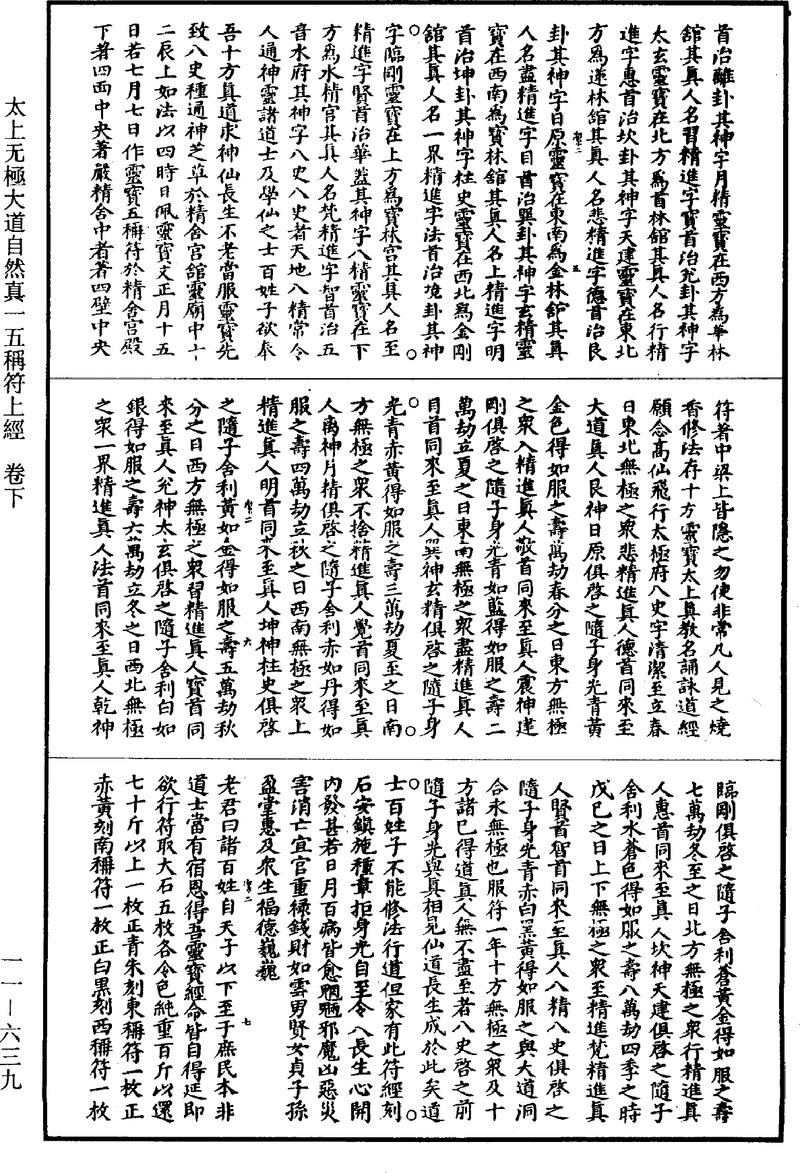 首治離卦其神字月精靈寶在西方為華林
舘其真人名習精進字寶首治兌卦其神字
太玄靈寶在北方為首林舘其真人名行精
進字惠首治坎卦其神字天建靈寶在東北
方為蓮林舘其真人名悲精進字德首治艮
卦其神字日原靈寶在東南為金林舘其真
人名盡精進字目首治巽卦其神字玄精靈
寶在西南為寶林舘其真人名上精進字明
首治坤卦其神字柱史靈寶在西北為金剛
舘其真人名一界精進字法首治境卦其神
字臨剛靈寶在上方為寶林宮其真人名至
精進字賢首治華蓋其神字八精靈寶在下
方為水精宮其真人名梵精進字智首治五
音水府其神字八史八史者天地八精常令
人通神靈諸道士及學仙之士百姓子欲奉
吾十方真道求神仙長生不老當服靈寶先
致八史種通神芝草於精舍宮舘靈廟中十
二辰上如法以四時日佩靈寶文正月十五
日若七月七日作靈寶五稱符於精舍宮殿
下著四面中央著嚴精舍中者著四壁中央
符著中梁上皆隱之勿使非常凡人見之燒
香修法存十方靈寶太上真教名誦詠道經
願念高仙飛行太極府八史字清潔至立春
日東北無極之衆悲精進真人德首同來至
大道真人艮神日原俱啓之隨子身光青黃
金色得如服之壽萬劫春分之日東方無極
之衆入精進真人敬首同來至真人震神建
剛俱啓之隨子身光青如藍得如服之壽二
萬劫立夏之日東南無極之衆盡精進真人
目首同來至真人巽神玄精俱啓之隨子身
光青赤黃得如服之壽三萬劫夏至之日南
方無極之衆不捨精進真人覺首同來至真
人离神月精俱啓之隨子舍利赤如丹得如
服之壽四萬劫立秋之日西南無極之衆上
精進真人明首同來至真人坤神柱史俱啓
之隨子舍利黃如金得如服之壽五萬劫秋
分之日西方無極之衆習精進真人寶首同
來至真人兌神太玄俱啓之隨子舍利白如
銀得如服之壽六萬劫立冬之日西北無極
之衆一界精進真人法首同來至真人乾神
臨剛俱啓之隨子舍利蒼黃金得如服之壽
七萬劫冬至之日北方無極之衆行精進真
人惠首同來至真人坎神天建俱啓之隨子
舍利水蒼色得如服之壽八萬劫四季之時
戊巳之日上下無極之衆至精進梵精進真
人賢首智首同來至真人八精八史俱啓之
隨子身光青赤白黑黃得如服之與大道洞
合永無極也服符一年十方無極之衆及十
方諸已得道真人無不盡至者八史啓之前
隨子身光與真相見仙道長生成於此矣道
士百姓子不能修法行道但家有此符經刻
石安鎮施種章拒身光自至令人長生心開
內發甚若日月百病皆愈魍魎邪魔凶惡災
害消亡宜官重祿錢財如雲男賢女貞子孫
盈堂惠及衆生福德巍巍
老君曰諸百姓自天子以下至于庶民本非
道士當有宿恩得吾靈寶經命皆自得延即
欲行符取大石五枚各令色純重百斤以還
七十斤以上一枚正青朱刻東稱符一枚正
赤黃刻南稱符一枚正白黑刻西稱符一枚
太上无極大道自然真一五稱符上經 卷下
一一—六三九